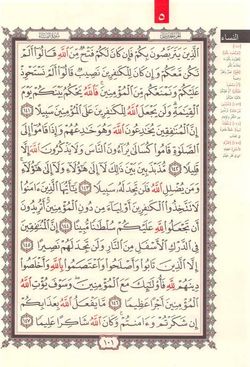 ٥
النساء
الَّذِينَ يَتَرَبَّصُونَ بِكُمْ فَإِن كَانَ لَكُمْ فَتْحٌ مِّنَ اللَّهِ قَالُوا أَلَمْ
نَكُن مَّعَكُمْ وَإِن كَانَ لِلْكَافِرِينَ نَصِيبٌ قَالُوا أَلَمْ نَسْتَحْوِذْ
عَلَيْكُمْ وَنَمْنَعْكُم مِّنَ الْمُؤْمِنِينَ فَاللَّهُ يَحْكُمُ بَيْنَكُمْ يَوْمَ
الْقِيَامَةِ وَلَن يَجْعَلَ اللَّهُ لِلْكَافِرِينَ عَلَى الْمُؤْمِنِينَ سَبِيلًا ١٤١
إِنَّ الْمُنَافِقِينَ يُخَادِعُونَ اللَّهَ وَهُوَ خَادِعُهُمْ وَإِذَا قَامُوا إِلَى
الصَّلَاةِ قَامُوا كُسَالَى يُرَاءُونَ النَّاسَ وَلَا يَذْكُرُونَ اللَّهَ إِلَّا
قَلِيلًا ١٤٢ مُّذَبْذَبِينَ بَيْنَ ذَلِكَ لَا إِلَى هَؤُلَاءِ وَلَا إِلَى هَؤُلَاءِ
وَمَن يُضْلِلِ اللَّهُ فَلَن تَجِدَ لَهُ سَبِيلًا ١٤٣ يَا أَيُّهَا الَّذِينَ آمَنُوا
لَا تَتَّخِذُوا الْكَافِرِينَ أَوْلِيَاءَ مِن دُونِ الْمُؤْمِنِينَ أَتُرِيدُونَ
أَن تَجْعَلُوا لِلَّهِ عَلَيْكُمْ سُلْطَانًا مُّبِينًا ١٤٤ إِنَّ الْمُنَافِقِينَ
فِي الدَّرْكِ الْأَسْفَلِ مِنَ النَّارِ وَلَن تَجِدَ لَهُمْ نَصِيرًا ١٤٥
إِلَّا الَّذِينَ تَابُوا وَأَصْلَحُوا وَاعْتَصَمُوا بِاللَّهِ وَأَخْلَصُوا
دِينَهُمْ لِلَّهِ فَأُولَئِكَ مَعَ الْمُؤْمِنِينَ وَسَوْفَ يُؤْتِ اللَّهُ
الْمُؤْمِنِينَ أَجْرًا عَظِيمًا ١٤٦ مَّا يَفْعَلُ اللَّهُ بِعَذَابِكُمْ
إِن شَكَرْتُمْ وَآمَنتُمْ وَكَانَ اللَّهُ شَاكِرًا عَلِيمًا ١٤٧
١٠١